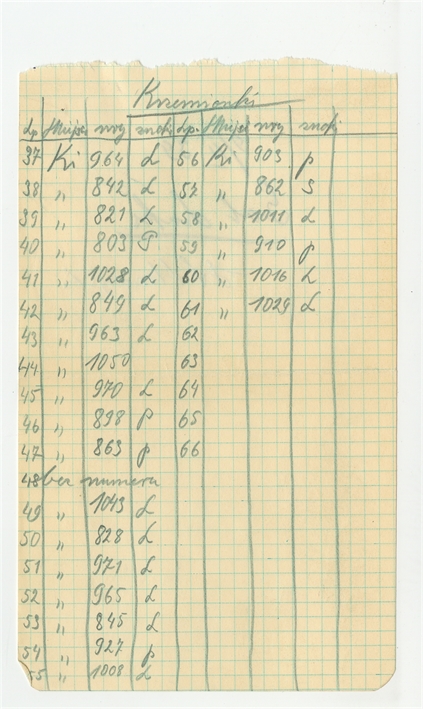 Krzemionki
Lp. Miejsc nry znaki Lp. Miejsc nry znaki
37 Ki 964 L 56 Ki 903 p
38 „ 842 L 57 „ 862 S
39 „ 821 L 58 „ 1011 L
40 „ 803 P 59 „ 910 p
41 „ 1028 L 60 „ 1016 L
42 „ 849 L 61 „ 1029 L
43 „ 963 L 62
44 „ 1050 63
45 „ 970 L 64
46 „ 898 P 65
47 „ 863 p 66
48 bez numeru
49 „ 1043 L
50 „ 828 L
51 „ 971 L
52 „ 965 L
53 „ 845 L
54 „ 927 p
55 „ 1008 L